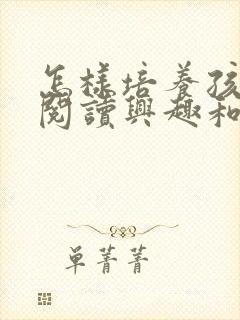 怎樣培養孩
閱讀興趣和
單菁菁